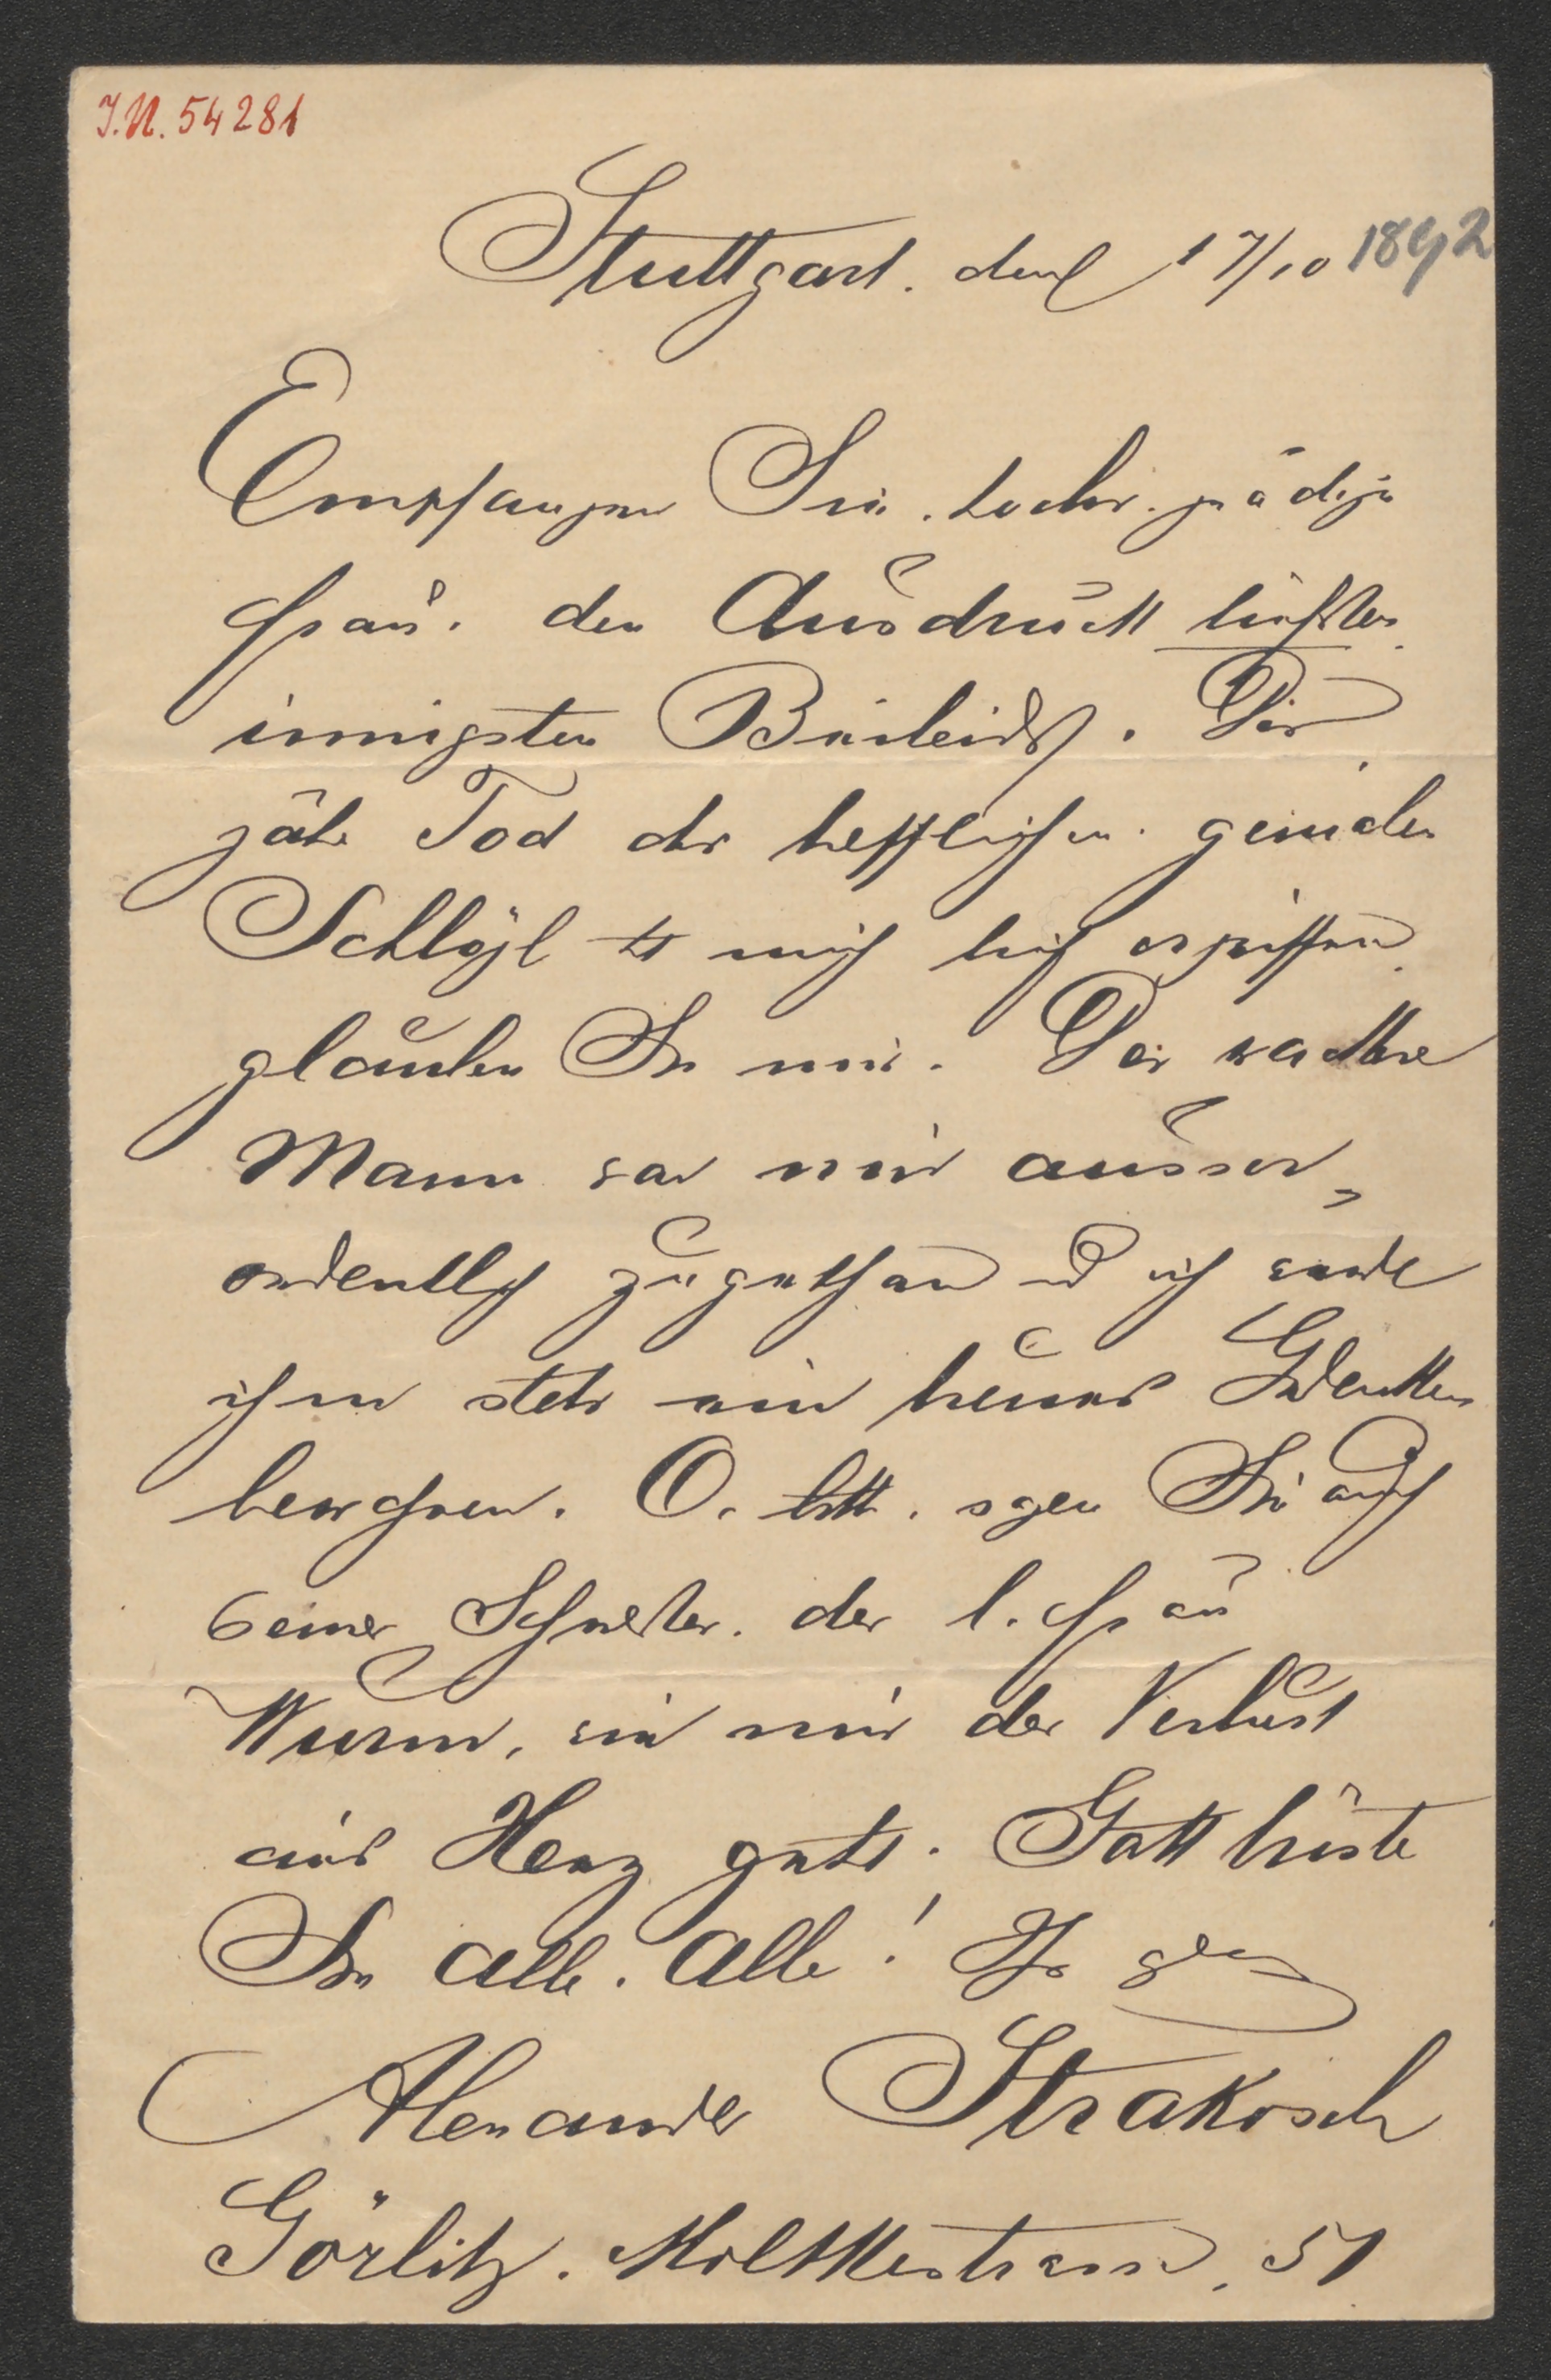 I.N. 54281
Stuttgart. den 17/10 1892
Empfangen Sie. hochv. gnädige
Frau. den Ausdruck tiefsten.
innigsten Beileids. Der
jähe Tod des trefflichen. genialen
Schlögl hat mich tief ergriffen.
glauben Sie mir. Der wackere
Mann war mir ausser-
ordentlich zugethan und ich werde
ihm stets ein treues Gedenken
bewahren. O. bitte. sagen Sie auch
seiner Schwester. der l. Frau
Wurm, wie mir der Verlust
ans Herz geht. Gott tröste
Sie alle. alle! Ihr
Alexander Strakosch
Görlitz. Moltkestrasse. 51